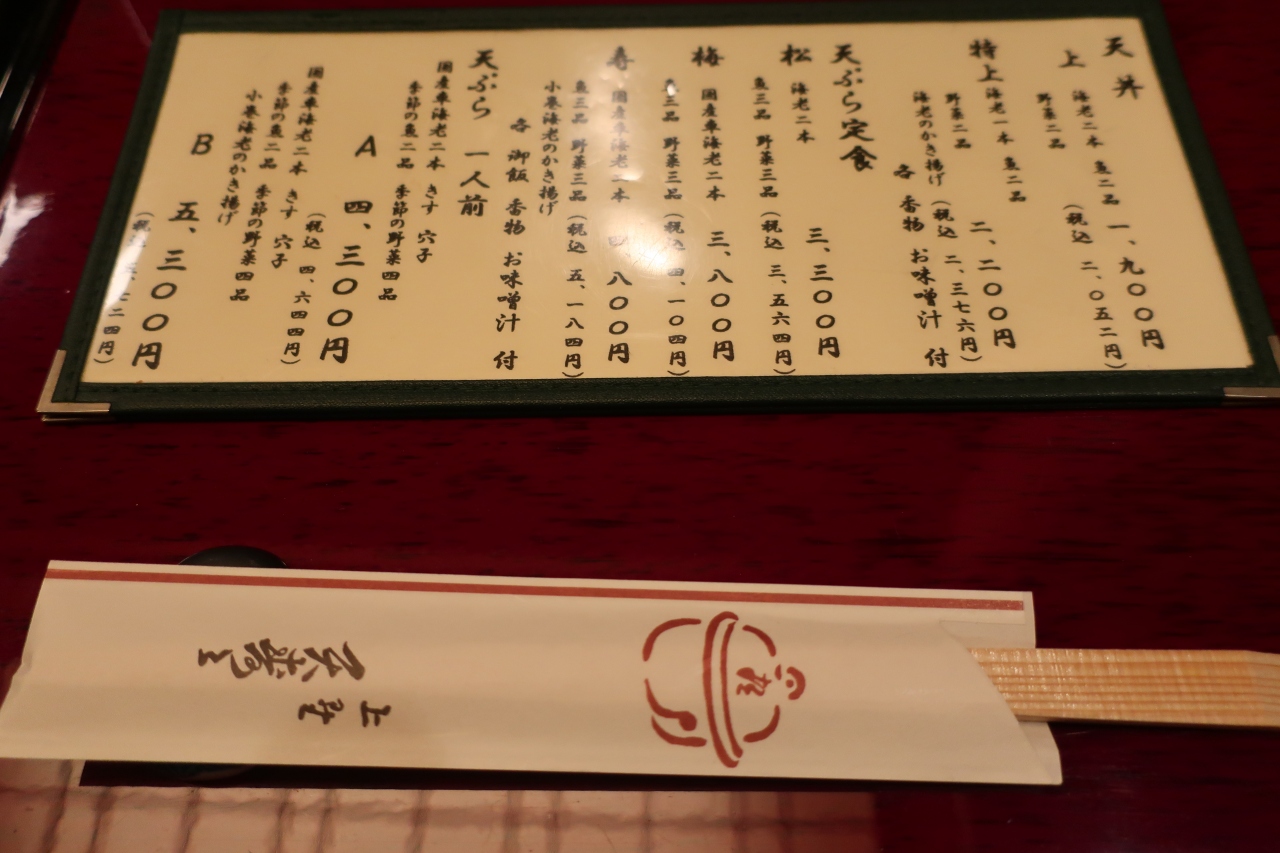 天丼
上 海老二本 魚二品 一、九〇〇円
野菜二品 (税込 二、〇五二円)
特上 海老一本 魚二品
野菜二品 二、二〇〇円
海老のかき揚げ (税込 二、三七六円)
各 香物 お味噌汁 付
天ぷら定食
松 海老二本 三、三〇〇円
魚三品 野菜三品 (税込 三、五六四円)
梅 国産車海老二本 三、八〇〇円
魚三品 野菜三品 (税込 四、一〇四円)
寿 国産車海老二本 四、八〇〇円
魚三品 野菜三品 (税込 五、一八四円)
小巻海老のかき揚げ
各 御飯 香物 お味噌汁 付
天ぷら 一人前
国産車海老二本 きす 穴子
季節の魚二品 季節の野菜四品
A 四、三〇〇円
(税込 四、六四四円)
国産車海老二本 きす 穴子
季節の魚二品 季節の野菜四品
小巻海老のかき揚げ
B 五、三〇〇円
(税込 五、七二四円)
上野
天寿々